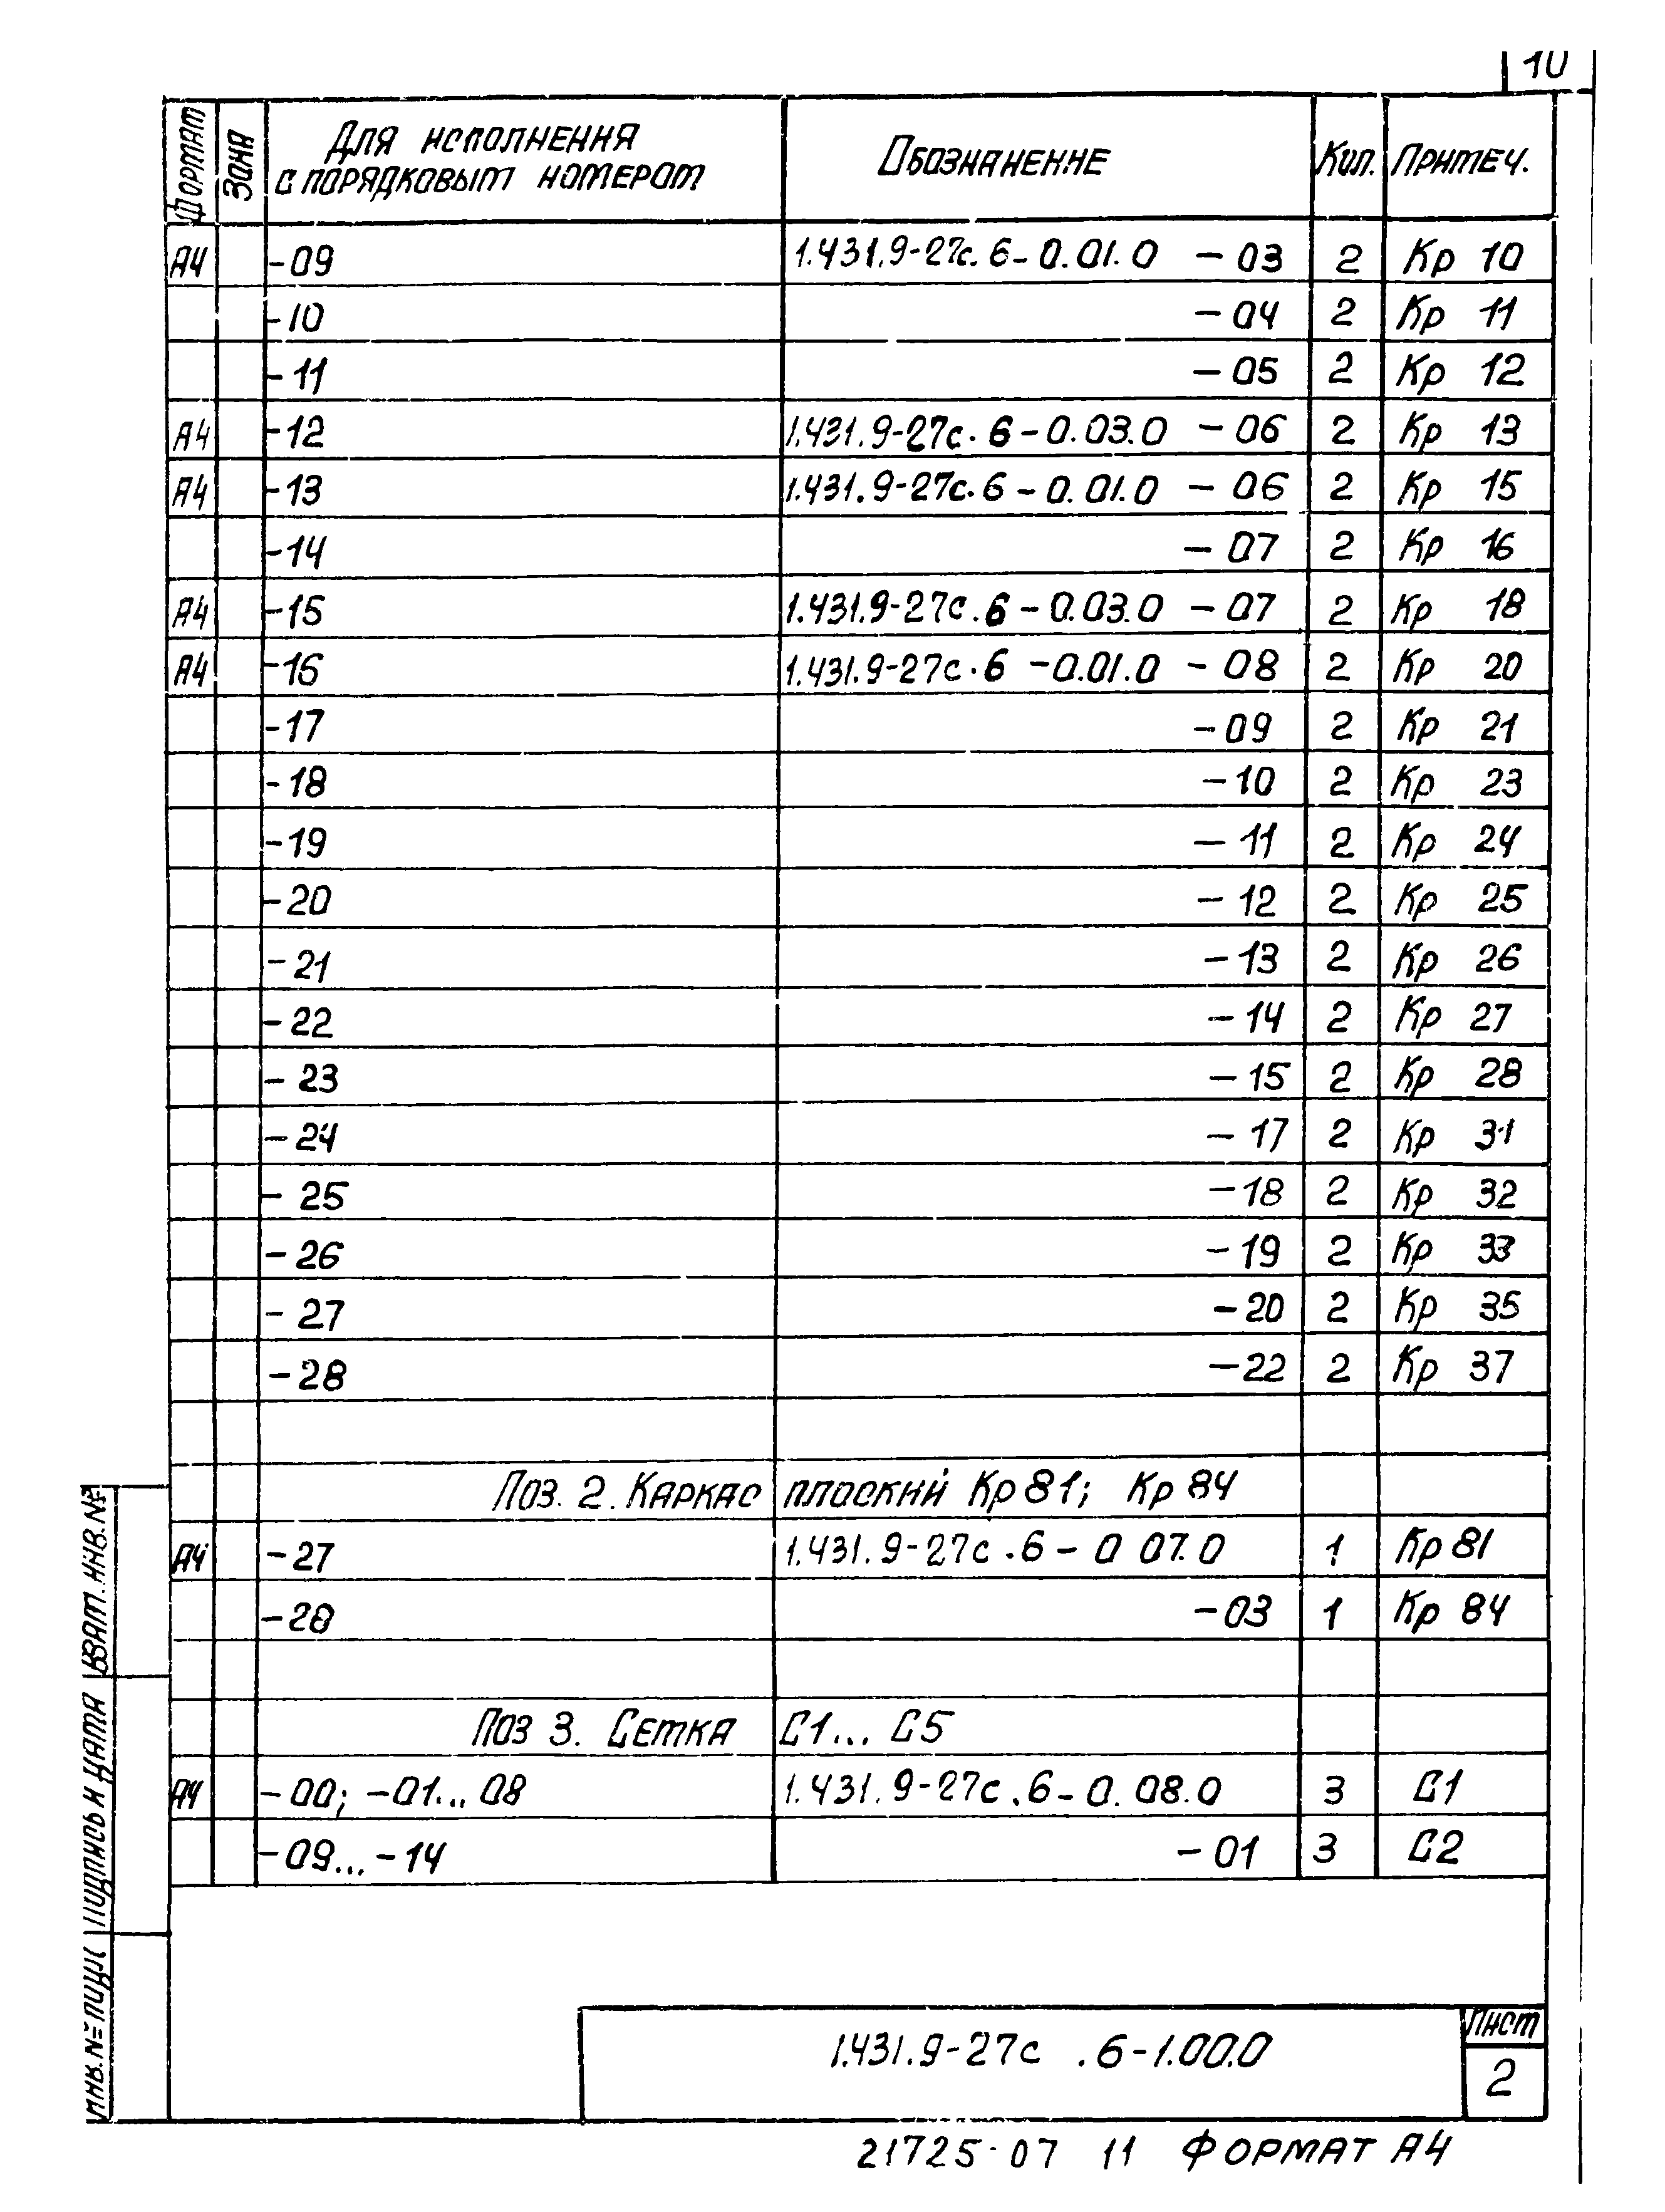 10
Формат Зона Для исполнения с порядковым номером Обозначение Кол. Примеч.
А4 -09 1.431.9-27с.6-0.01.0 -03 2 Кр 10
-10 -04 2 Кр 11
-11 -05 2 Кр 12
А4 -12 1.431.9-27с.6-0.03.0 -06 2 Кр 13
А4 -13 1.431.9-27с.6-0.01.0 -06 2 Кр 15
-14 -07 2 Кр 16
А4 -15 1.431.9-27с.6-0.03.0 -07 2 Кр 18
А4 -16 1.431.9-27с.6-0.01.0 -08 2 Кр 20
-17 -09 2 Кр 21
-18 -10 2 Кр 23
-19 -11 2 Кр 24
-20 -12 2 Кр 25
-21 -13 2 Кр 26
-22 -14 2 Кр 27
-23 -15 2 Кр 28
-24 -17 2 Кр 31
-25 -18 2 Кр 32
-26 -19 2 Кр 33
-27 -20 2 Кр 35
-28 -22 2 Кр 37
Поз. 2. Каркас плоский Кр 81; Кр 84
А4 -27 1.431.9-27с.6-0 07.0 1 Кр 81
-28 -03 1 Кр 84
Поз 3. Сетка С1... С5
А4 -00; -01... 08 1.431.9-27с.6-0.08.0 3 С1
-09...-14 -01 3 С2
Взам. инв. №
Подпись и дата
Инв. № подл
1.431.9-27с .6-1.00.0
Лист
2
21725-07 11 Формат А4